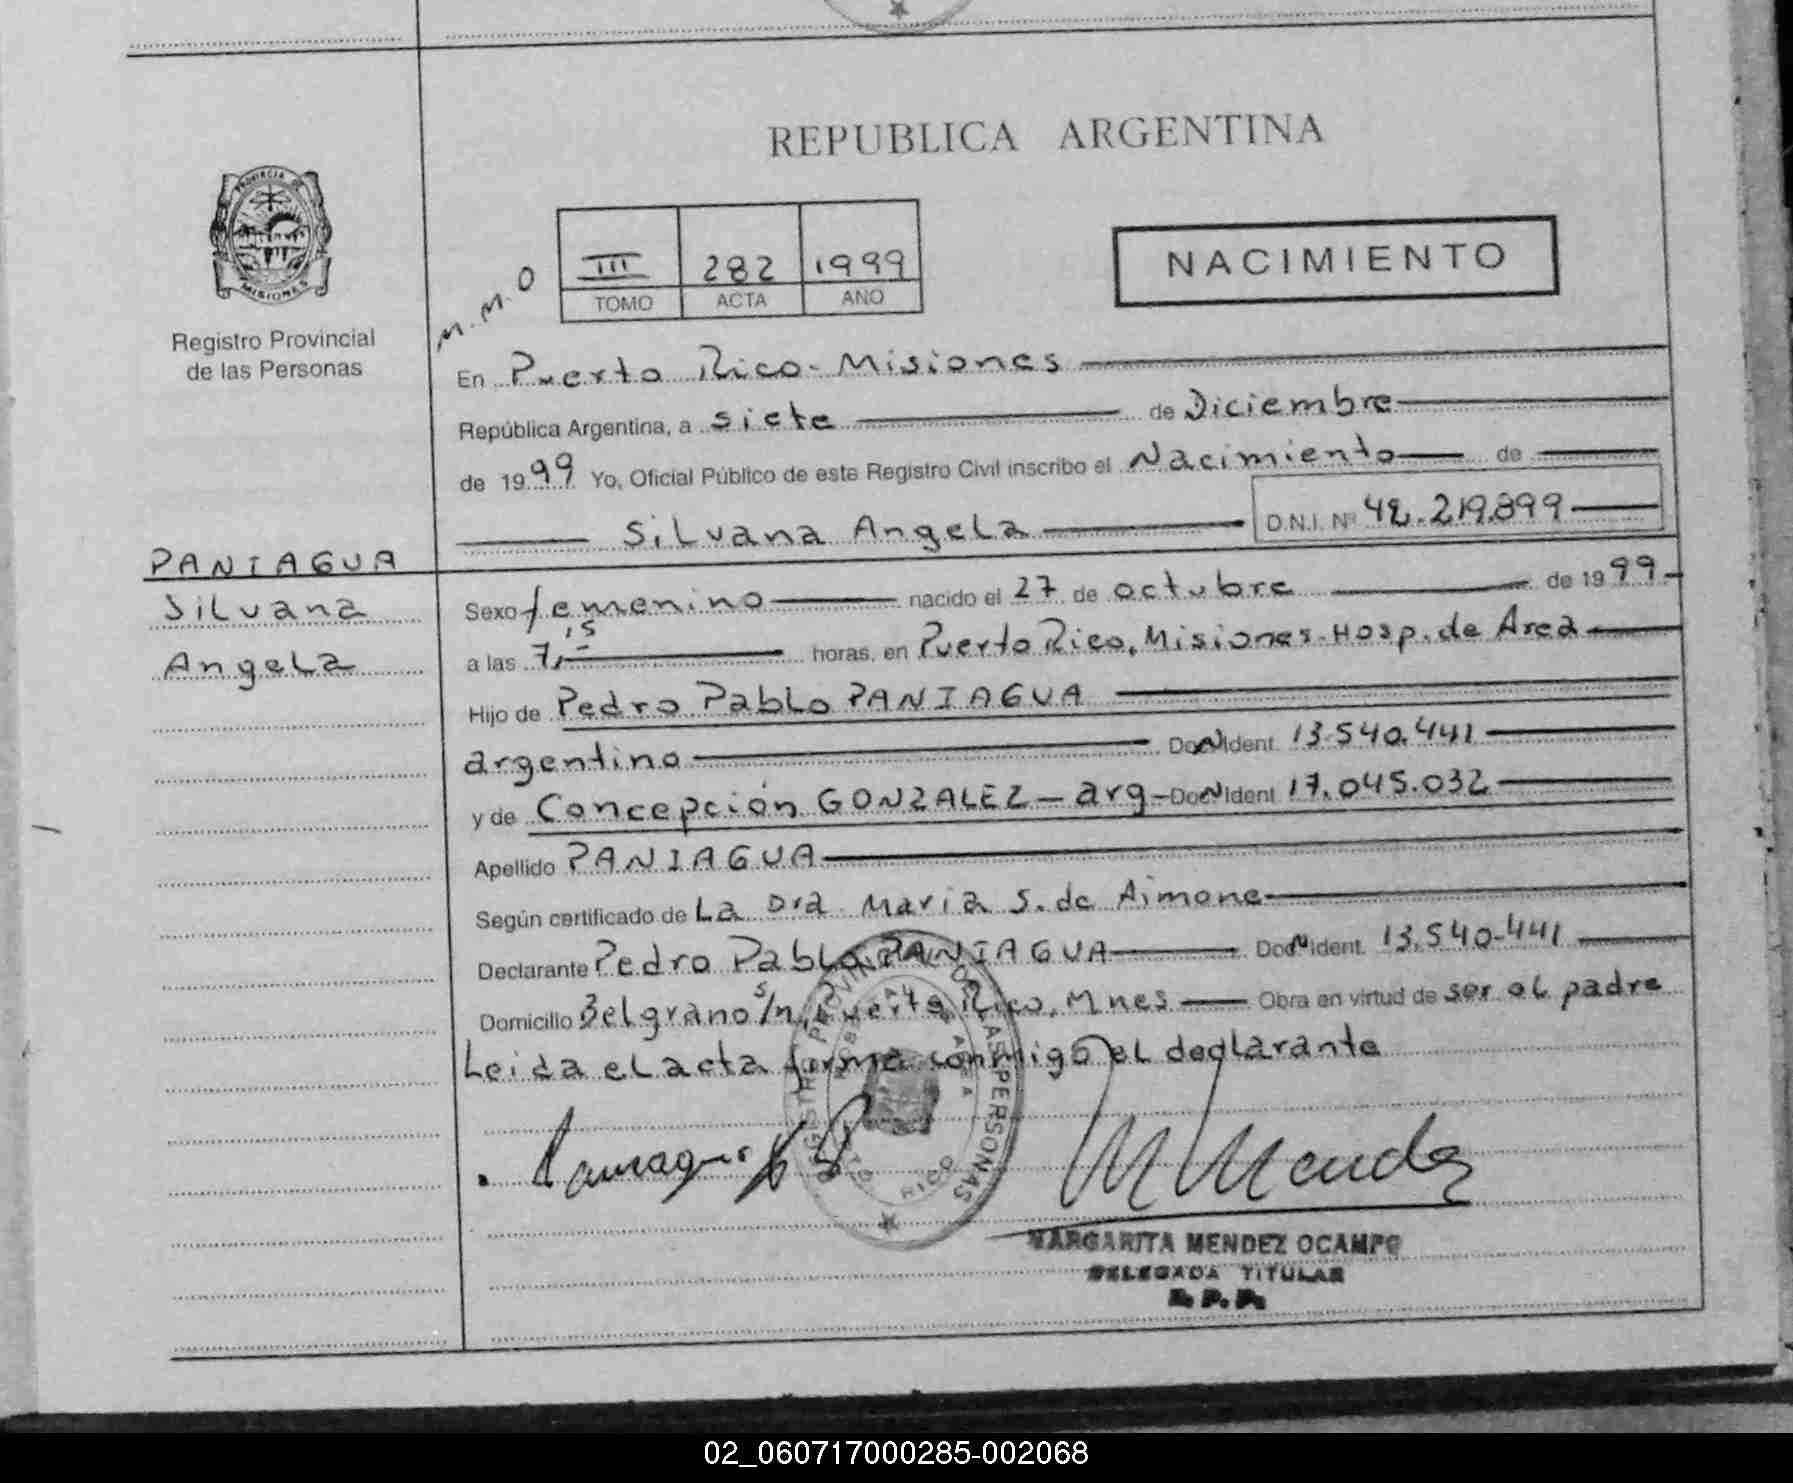 REPUBLICA ARGENTINA
PROVINCIA DE
MISIONES
Registro Provincial
de las Personas
III 282 1999
TOMO ACTA AÑO
NACIMIENTO
M.M.O
En Puerto Rico - Misiones
República Argentina, a siete de Diciembre
de 1999 Yo, Oficial Público de este Registro Civil inscribo el Nacimiento de
Silvana Angela D.N.I. Nº 42.219.899
PANIAGUA
Silvana
Angela
Sexo femenino nacido el 27 de octubre de 1999
a las 7,15 horas, en Puerto Rico, Misiones - Hosp. de Area
Hijo de Pedro Pablo PANIAGUA
argentino Doc. Ident. 13.540.441
y de Concepción GONZALEZ - arg - Doc. Ident. 17.045.032
Apellido PANIAGUA
Según certificado de La Dra. Maria S. de Aimone
Declarante Pedro Pablo PANIAGUA Doc. Ident. 13.540.441
Domicilio Belgrano s/n, Puerto Rico, Mnes Obra en virtud de ser el padre
Leida el acta firma conmigo el declarante
M Mendez
MARGARITA MENDEZ OCAMPO
DELEGADA TITULAR
R.P.P.
02_060717000285-002068